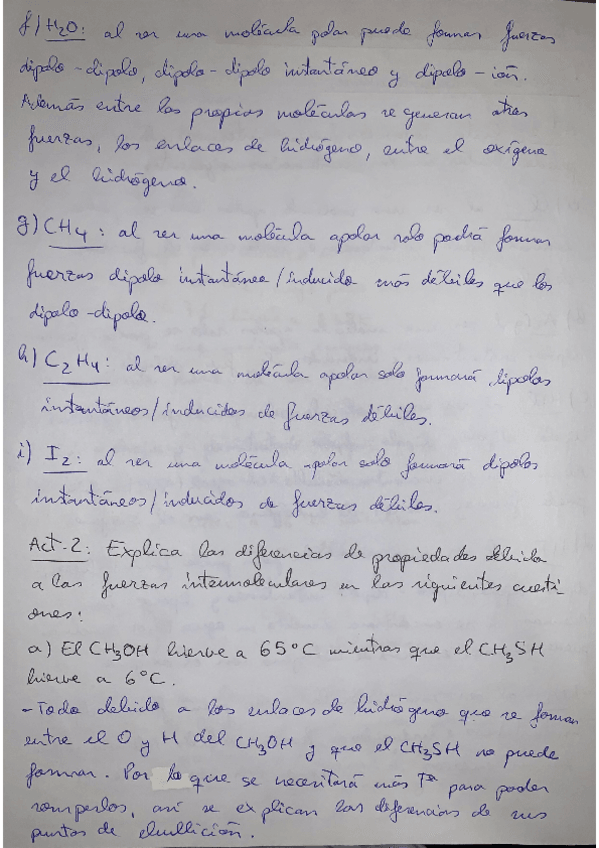 f) H2O: al ser una molécula polar puede formar fuerzas
dipolo-dipolo, dipolo-dipolo instantáneo y dipolo-ión.
Además entre las propias moléculas se generan otras
fuerzas, los enlaces de hidrógeno, entre el oxígeno
y el hidrógeno.
g) CH4: al ser una molécula apolar solo podrá formar
fuerzas dipolo instantáneo/inducido más débiles que los
dipolo-dipolo.
h) C2H4: al ser una molécula apolar solo formará dipolos
instantáneos/inducidos de fuerzas débiles.
i) I2: al ser una molécula apolar solo formará dipolos
instantáneos/inducidos de fuerzas débiles.
Act-2: Explica las diferencias de propiedades debida
a las fuerzas intermoleculares en las siguientes cuesti-
ones:
a) El CH3OH hierve a 65°C mientras que el CH3SH
hierve a 6°C.
- Todo debido a los enlaces de hidrógeno que se forman
entre el O y H del CH3OH y que el CH3SH no puede
formar. Por lo que se necesitará más Tª para poder
romperlos, así se explican las diferencias de sus
puntos de ebullición.